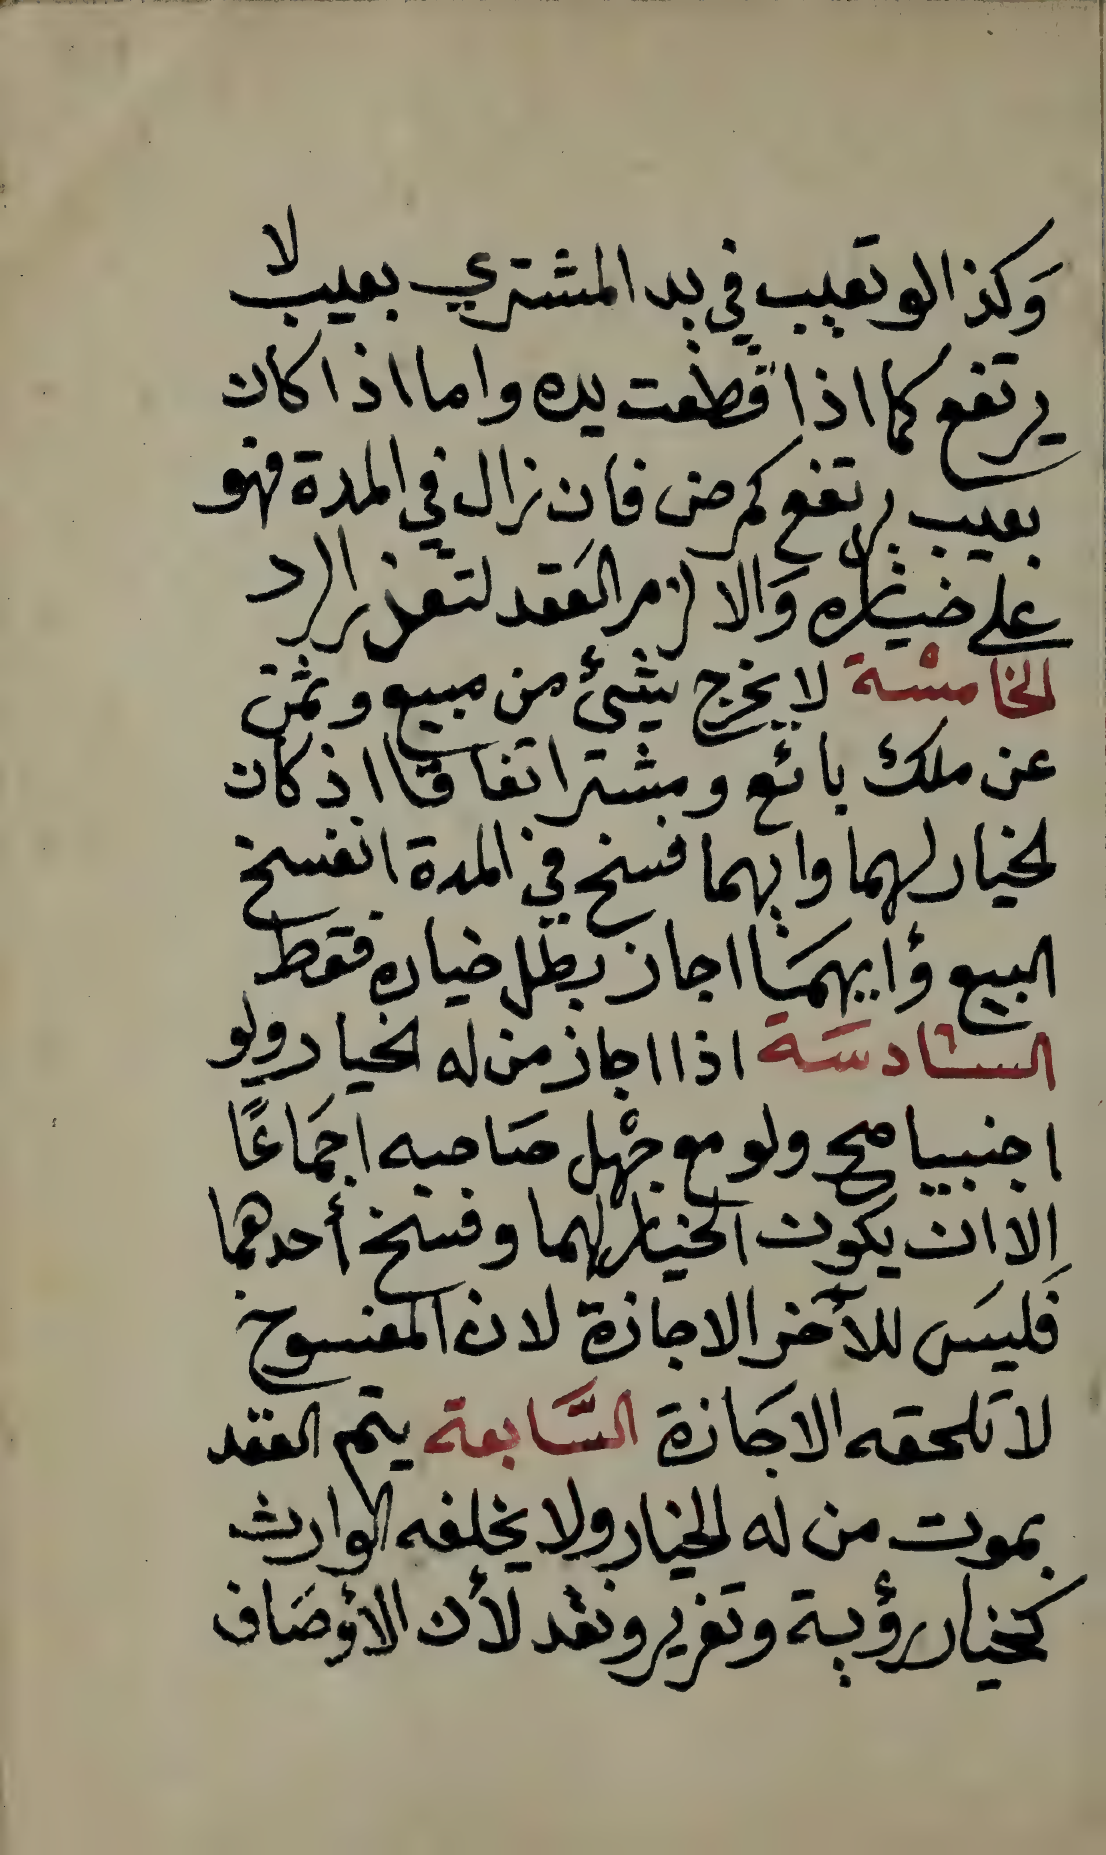 وكذا لو تعيب في يد المشتري بعيب لا
يرتفع كما اذا قطعت يده واما اذا كان
بعيب يرتفع كمرض فان زال في المدة فهو
على خياره والا لزم العقد لتعذر الرد
الخامسة لا يخرج شئ من مبيع وثمن
عن ملك بائع ومشتر اتفاقا اذ كان
الخيار لهما وايهما فسخ في المدة انفسخ
البيع وأيهما اجاز بطل خياره فقط
السادسة اذا اجاز من له الخيار ولو
اجنبيا صح ولو مع جهل صاحبه اجماعًا
الا ان يكون الخيار لهما وفسخ أحدهما
فليس للآخر الاجازة لان المفسوخ
لا تلحقه الاجازة السَّابعة يتم العقد
بموت من له الخيار ولا يخلفه الوارث
كخيار رؤية وتغرير ونقد لأن الاوصاف